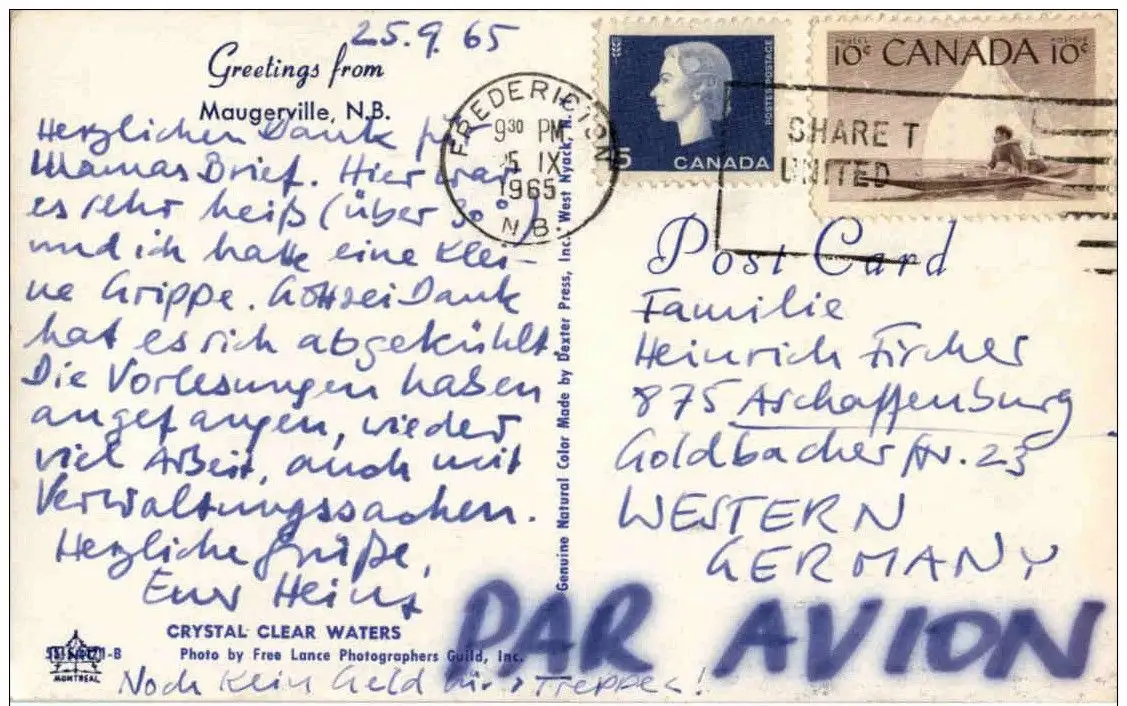 25.9.65
Greetings from
Maugerville, N.B.
Herzlichen Dank für
Mamas Brief. Hier war
es sehr heiß (über 30°)
und ich hatte eine klei-
ne Grippe. Gottseidank
hat es sich abgekühlt.
Die Vorlesungen haben
angefangen, wieder
viel Arbeit, auch mit
Verwaltungssachen.
Herzliche Grüße,
Euer Heinz
CRYSTAL CLEAR WATERS
Photo by Free Lance Photographers Guild, Inc.
-B
MONTREAL
Noch kein Geld für's Treppen!
Genuine Natural Color Made by Dexter Press, Inc. West Nyack, N.
FREDERICTON
9 30 PM
25 IX
1965
N.B.
5
CANADA
POSTES POSTAGE
POSTES POSTAGE
10¢ CANADA 10¢
SHARE T
UNITED
Post Card
Familie
Heinrich Fircher
875 Aschaffenburg
Goldbacher Str. 23
WESTERN
GERMANY
PAR AVION